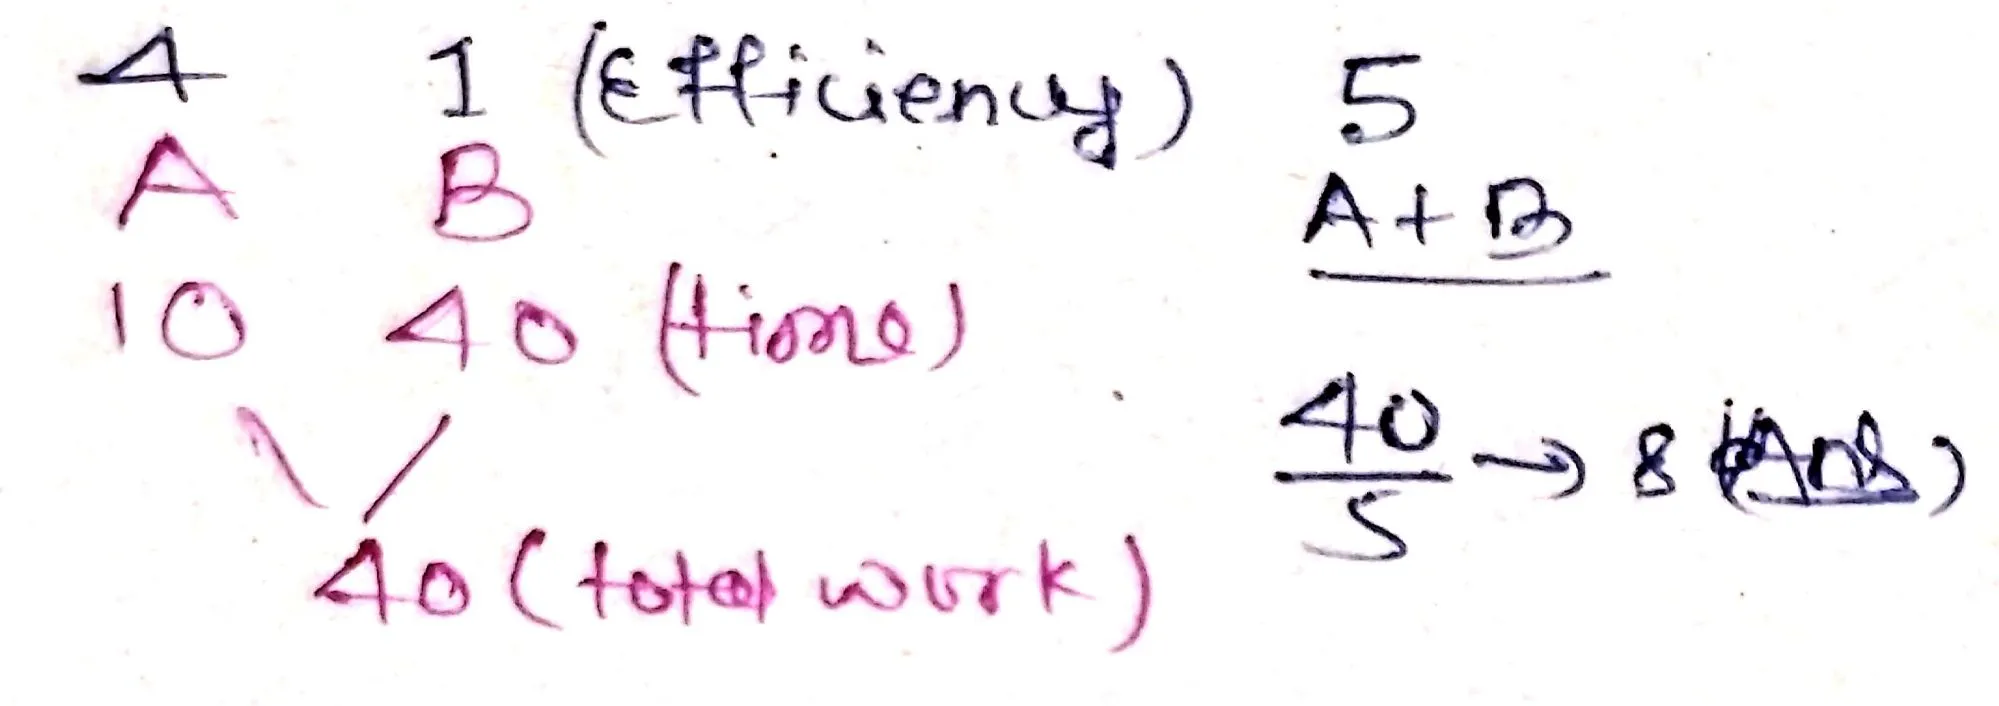 4 1 (Efficiency) 5
A B A+B
10 40 (time)
40/5 → 8 (Ans)
40 (total work)